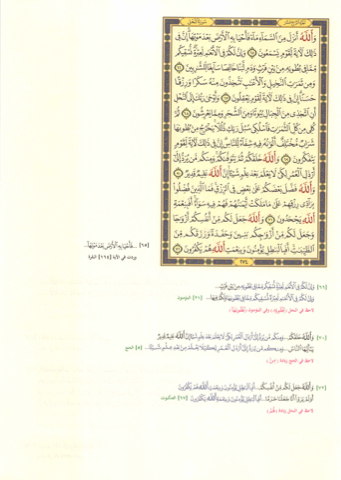 وَٱللَّهُ أَنزَلَ مِنَ ٱلسَّمَآءِ مَآءً فَأَحْيَا بِهِ ٱلْأَرْضَ بَعْدَ مَوْتِهَآ إِنَّ فِى
ذَٰلِكَ لَءَايَةً لِّقَوْمٍ يَسْمَعُونَ ٦٥ وَإِنَّ لَكُمْ فِى ٱلْأَنْعَٰمِ لَعِبْرَةً نُّسْقِيكُم
مِّمَّا فِى بُطُونِهِۦ مِنۢ بَيْنِ فَرْثٍ وَدَمٍ لَّبَنًا خَالِصًا سَآئِغًا لِّلشَّٰرِبِينَ ٦٦
وَمِن ثَمَرَٰتِ ٱلنَّخِيلِ وَٱلْأَعْنَٰبِ تَتَّخِذُونَ مِنْهُ سَكَرًا وَرِزْقًا
حَسَنًا إِنَّ فِى ذَٰلِكَ لَءَايَةً لِّقَوْمٍ يَعْقِلُونَ ٦٧ وَأَوْحَىٰ رَبُّكَ إِلَى ٱلنَّحْلِ
أَنِ ٱتَّخِذِى مِنَ ٱلْجِبَالِ بُيُوتًا وَمِنَ ٱلشَّجَرِ وَمِمَّا يَعْرِشُونَ ٦٨ ثُمَّ
كُلِى مِن كُلِّ ٱلثَّمَرَٰتِ فَٱسْلُكِى سُبُلَ رَبِّكِ ذُلُلًا يَخْرُجُ مِنۢ بُطُونِهَا
شَرَابٌ مُّخْتَلِفٌ أَلْوَٰنُهُۥ فِيهِ شِفَآءٌ لِّلنَّاسِ إِنَّ فِى ذَٰلِكَ لَءَايَةً لِّقَوْمٍ
يَتَفَكَّرُونَ ٦٩ وَٱللَّهُ خَلَقَكُمْ ثُمَّ يَتَوَفَّىٰكُمْ وَمِنكُم مَّن يُرَدُّ إِلَىٰٓ
أَرْذَلِ ٱلْعُمُرِ لِكَىْ لَا يَعْلَمَ بَعْدَ عِلْمٍ شَيْـًٔا إِنَّ ٱللَّهَ عَلِيمٌ قَدِيرٌ ٧٠
وَٱللَّهُ فَضَّلَ بَعْضَكُمْ عَلَىٰ بَعْضٍ فِى ٱلرِّزْقِ فَمَا ٱلَّذِينَ فُضِّلُوا۟
بِرَآدِّى رِزْقِهِمْ عَلَىٰ مَا مَلَكَتْ أَيْمَٰنُهُمْ فَهُمْ فِيهِ سَوَآءٌ أَفَبِنِعْمَةِ
ٱللَّهِ يَجْحَدُونَ ٧١ وَٱللَّهُ جَعَلَ لَكُم مِّنْ أَنفُسِكُمْ أَزْوَٰجًا
وَجَعَلَ لَكُم مِّنْ أَزْوَٰجِكُم بَنِينَ وَحَفَدَةً وَرَزَقَكُم مِّنَ
ٱلطَّيِّبَٰتِ أَفَبِٱلْبَٰطِلِ يُؤْمِنُونَ وَبِنِعْمَتِ ٱللَّهِ هُمْ يَكْفُرُونَ ٧٢
٢٧٤
[٦٥] ...فَأَحْيَا بِهِ ٱلْأَرْضَ بَعْدَ مَوْتِهَآ...
وردت في الآية [١٦٤] البقرة
[٦٦] وَإِنَّ لَكُمْ فِى ٱلْأَنْعَٰمِ لَعِبْرَةً نُّسْقِيكُم مِّمَّا فِى بُطُونِهِۦ مِنۢ بَيْنِ فَرْثٍ...
وَإِنَّ لَكُمْ فِى ٱلْأَنْعَٰمِ لَعِبْرَةً نُّسْقِيكُم مِّمَّا فِى بُطُونِهَا وَلَكُمْ فِيهَا... [٢١] المؤمنون
[٧٠] وَٱللَّهُ خَلَقَكُمْ... وَمِنكُم مَّن يُرَدُّ إِلَىٰٓ أَرْذَلِ ٱلْعُمُرِ لِكَىْ لَا يَعْلَمَ بَعْدَ عِلْمٍ شَيْـًٔا إِنَّ ٱللَّهَ عَلِيمٌ قَدِيرٌ
يَٰٓأَيُّهَا ٱلنَّاسُ... وَمِنكُم مَّن يُرَدُّ إِلَىٰٓ أَرْذَلِ ٱلْعُمُرِ لِكَيْلَا يَعْلَمَ مِنۢ بَعْدِ عِلْمٍ شَيْـًٔا... [٥] الحج
[٧٢] وَٱللَّهُ جَعَلَ لَكُم مِّنْ أَنفُسِكُمْ... أَفَبِٱلْبَٰطِلِ يُؤْمِنُونَ وَبِنِعْمَتِ ٱللَّهِ هُمْ يَكْفُرُونَ
أَوَلَمْ يَرَوْا۟ أَنَّا جَعَلْنَا حَرَمًا... أَفَبِٱلْبَٰطِلِ يُؤْمِنُونَ وَبِنِعْمَةِ ٱللَّهِ يَكْفُرُونَ [٦٧] العنكبوت